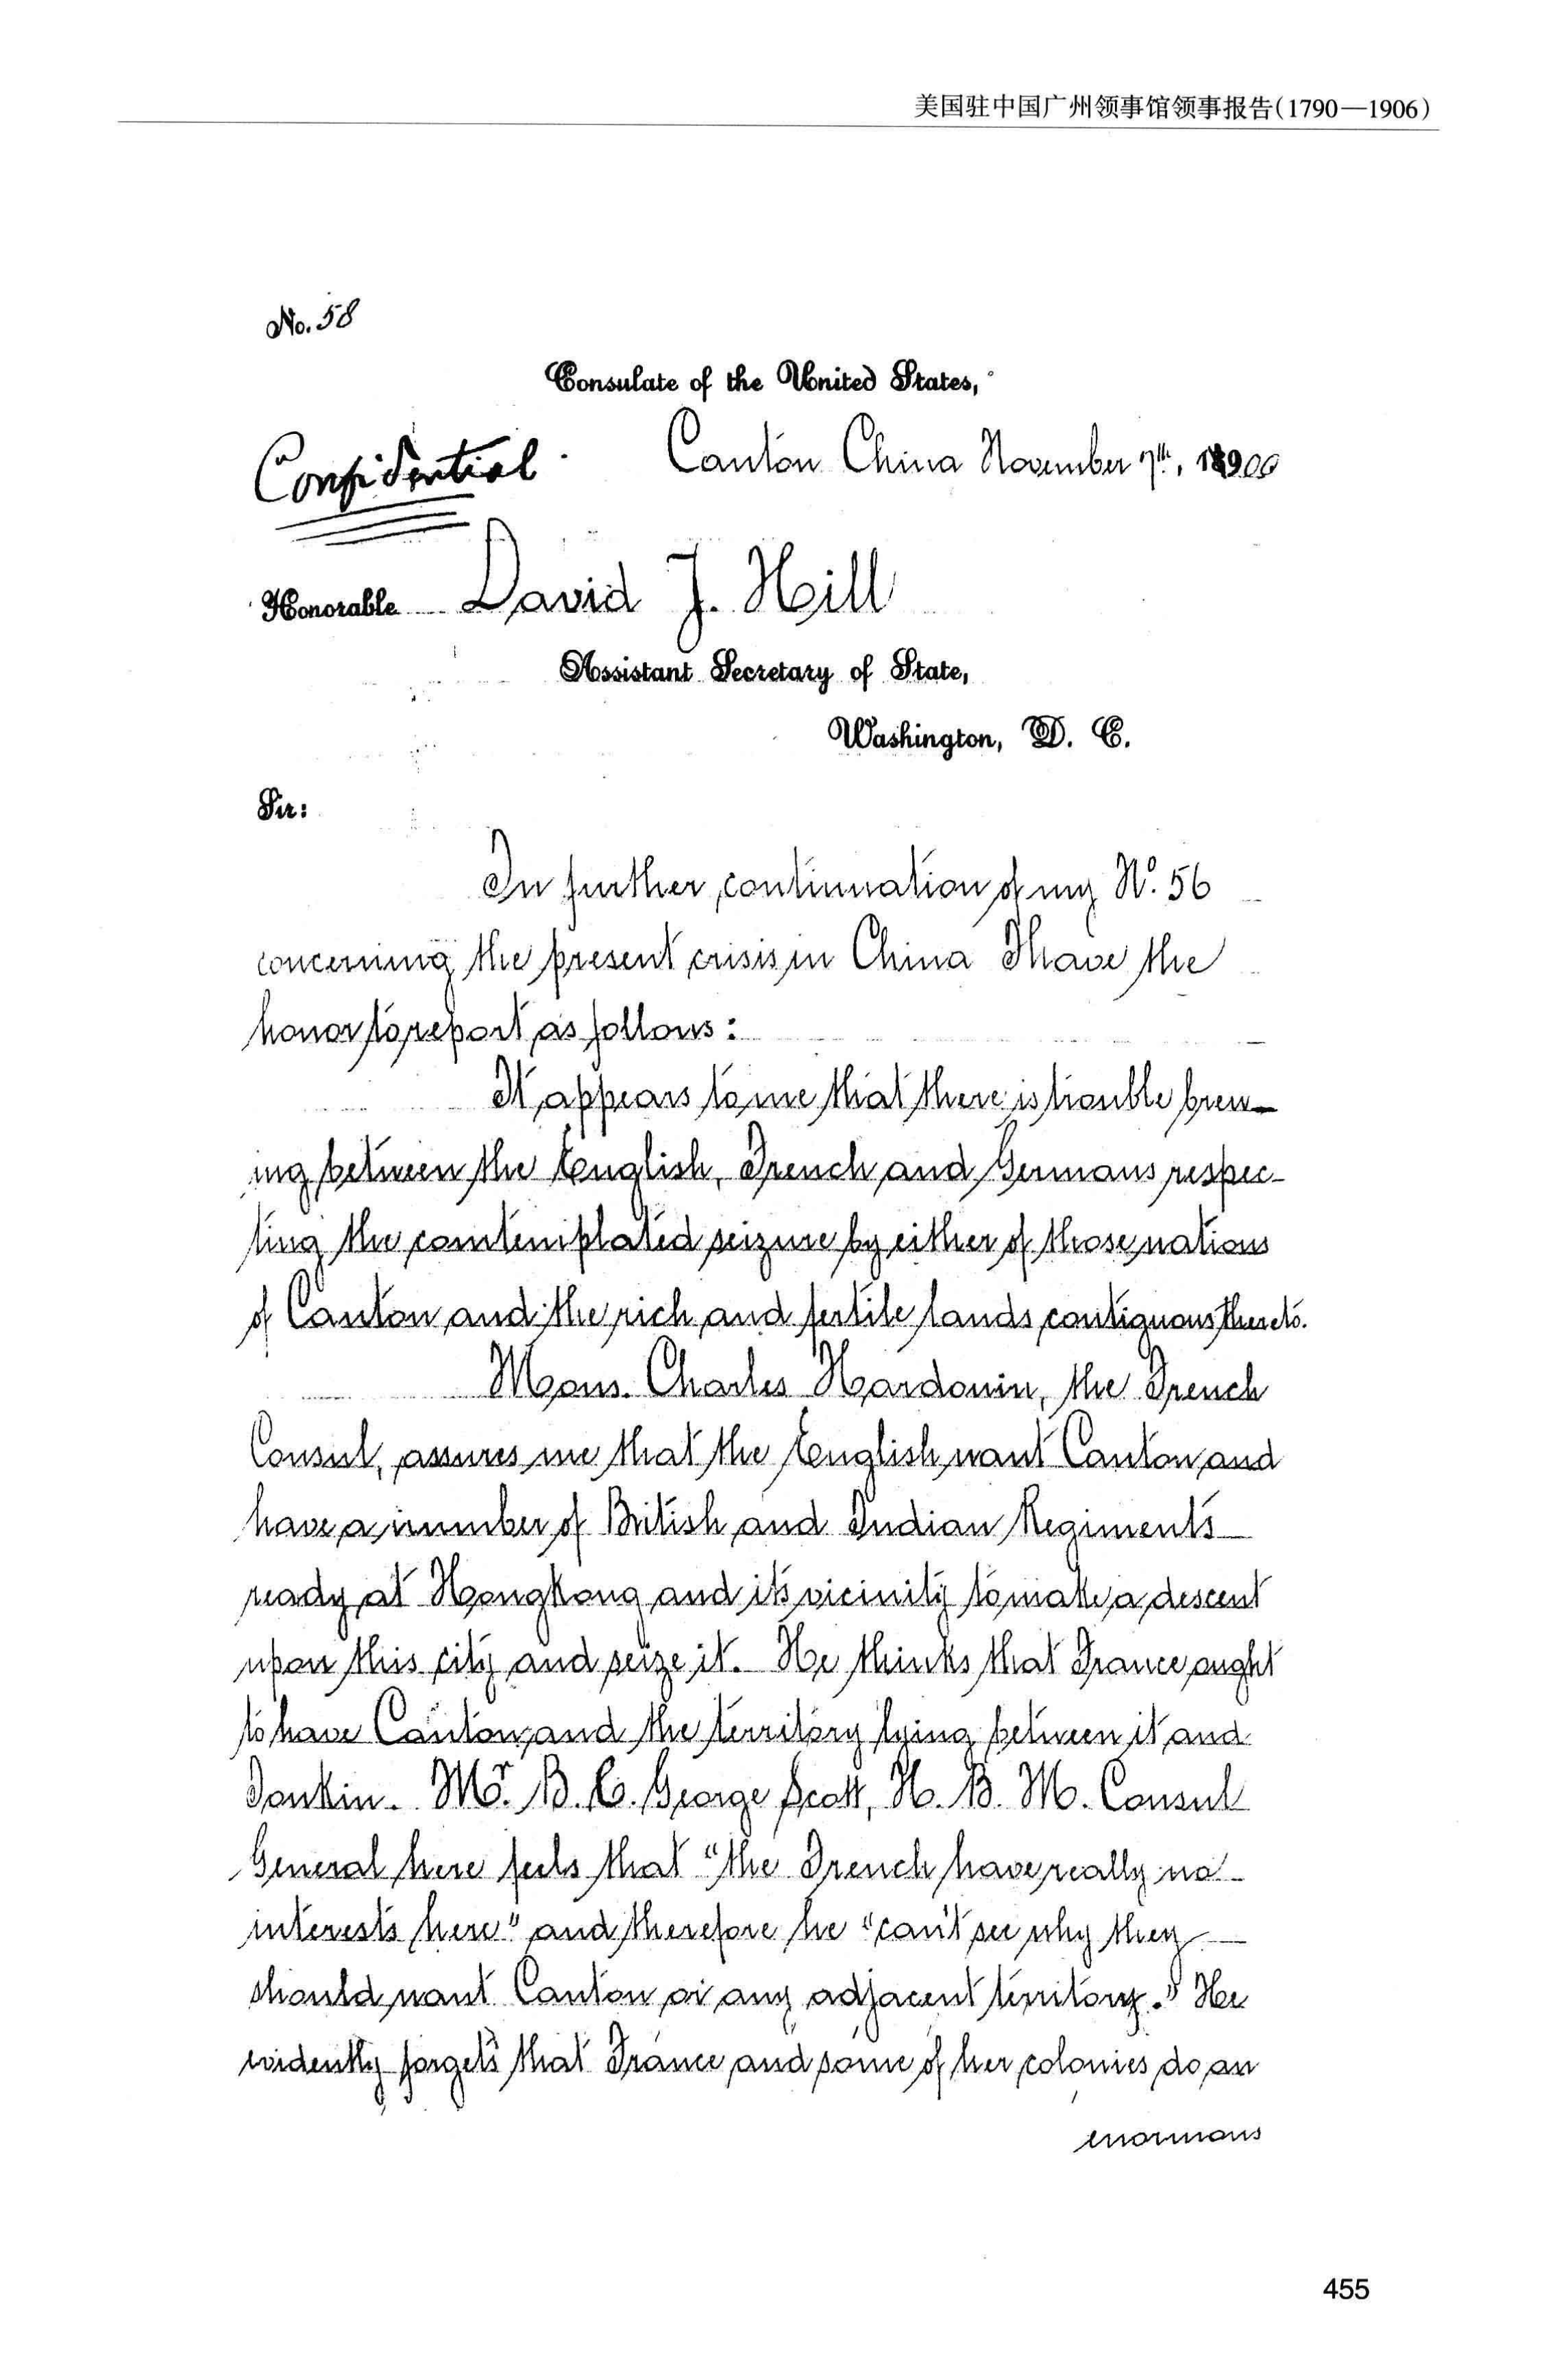 美国驻中国广州领事馆领事报告(1790—1906)
No. 58
Consulate of the United States,
Confidential
Canton China November 7th, 1900
Honorable David J. Hill
Assistant Secretary of State,
Washington, D. C.
Sir:
In further continuation of my No. 56
concerning the present crisis in China I have the
honor to report as follows:
It appears to me that there is trouble brew-
ing between the English, French and Germans respec-
ting the contemplated seizure by either of those nations
of Canton and the rich and fertile lands contiguous thereto.
Mons. Charles Hardouin, the French
Consul, assures me that the English want Canton and
have a number of British and Indian Regiments
ready at Hongkong and its vicinity to make a descent
upon this city and seize it. He thinks that France ought
to have Canton and the territory lying between it and
Tonkin. Mr. B. C. George Scott, H. B. M. Consul
General here feels that "the French have really no
interests here" and therefore he "can't see why they
should want Canton or any adjacent territory." He
evidently forgets that France and some of her colonies do an
enormous
455